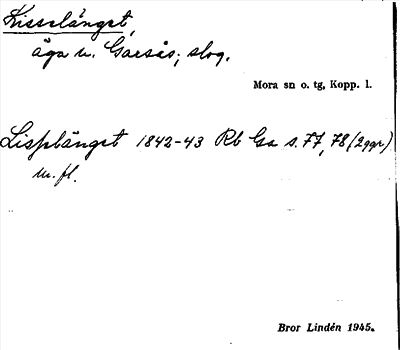 Kisslänget,
äga u. Garsås; slog.
Mora sn o. tg, Kopp. l.
Lisslänget 1842-43 Rb Ga s. 77, 78 (2 ggr)
m. fl.
Bror Lindén 1945.